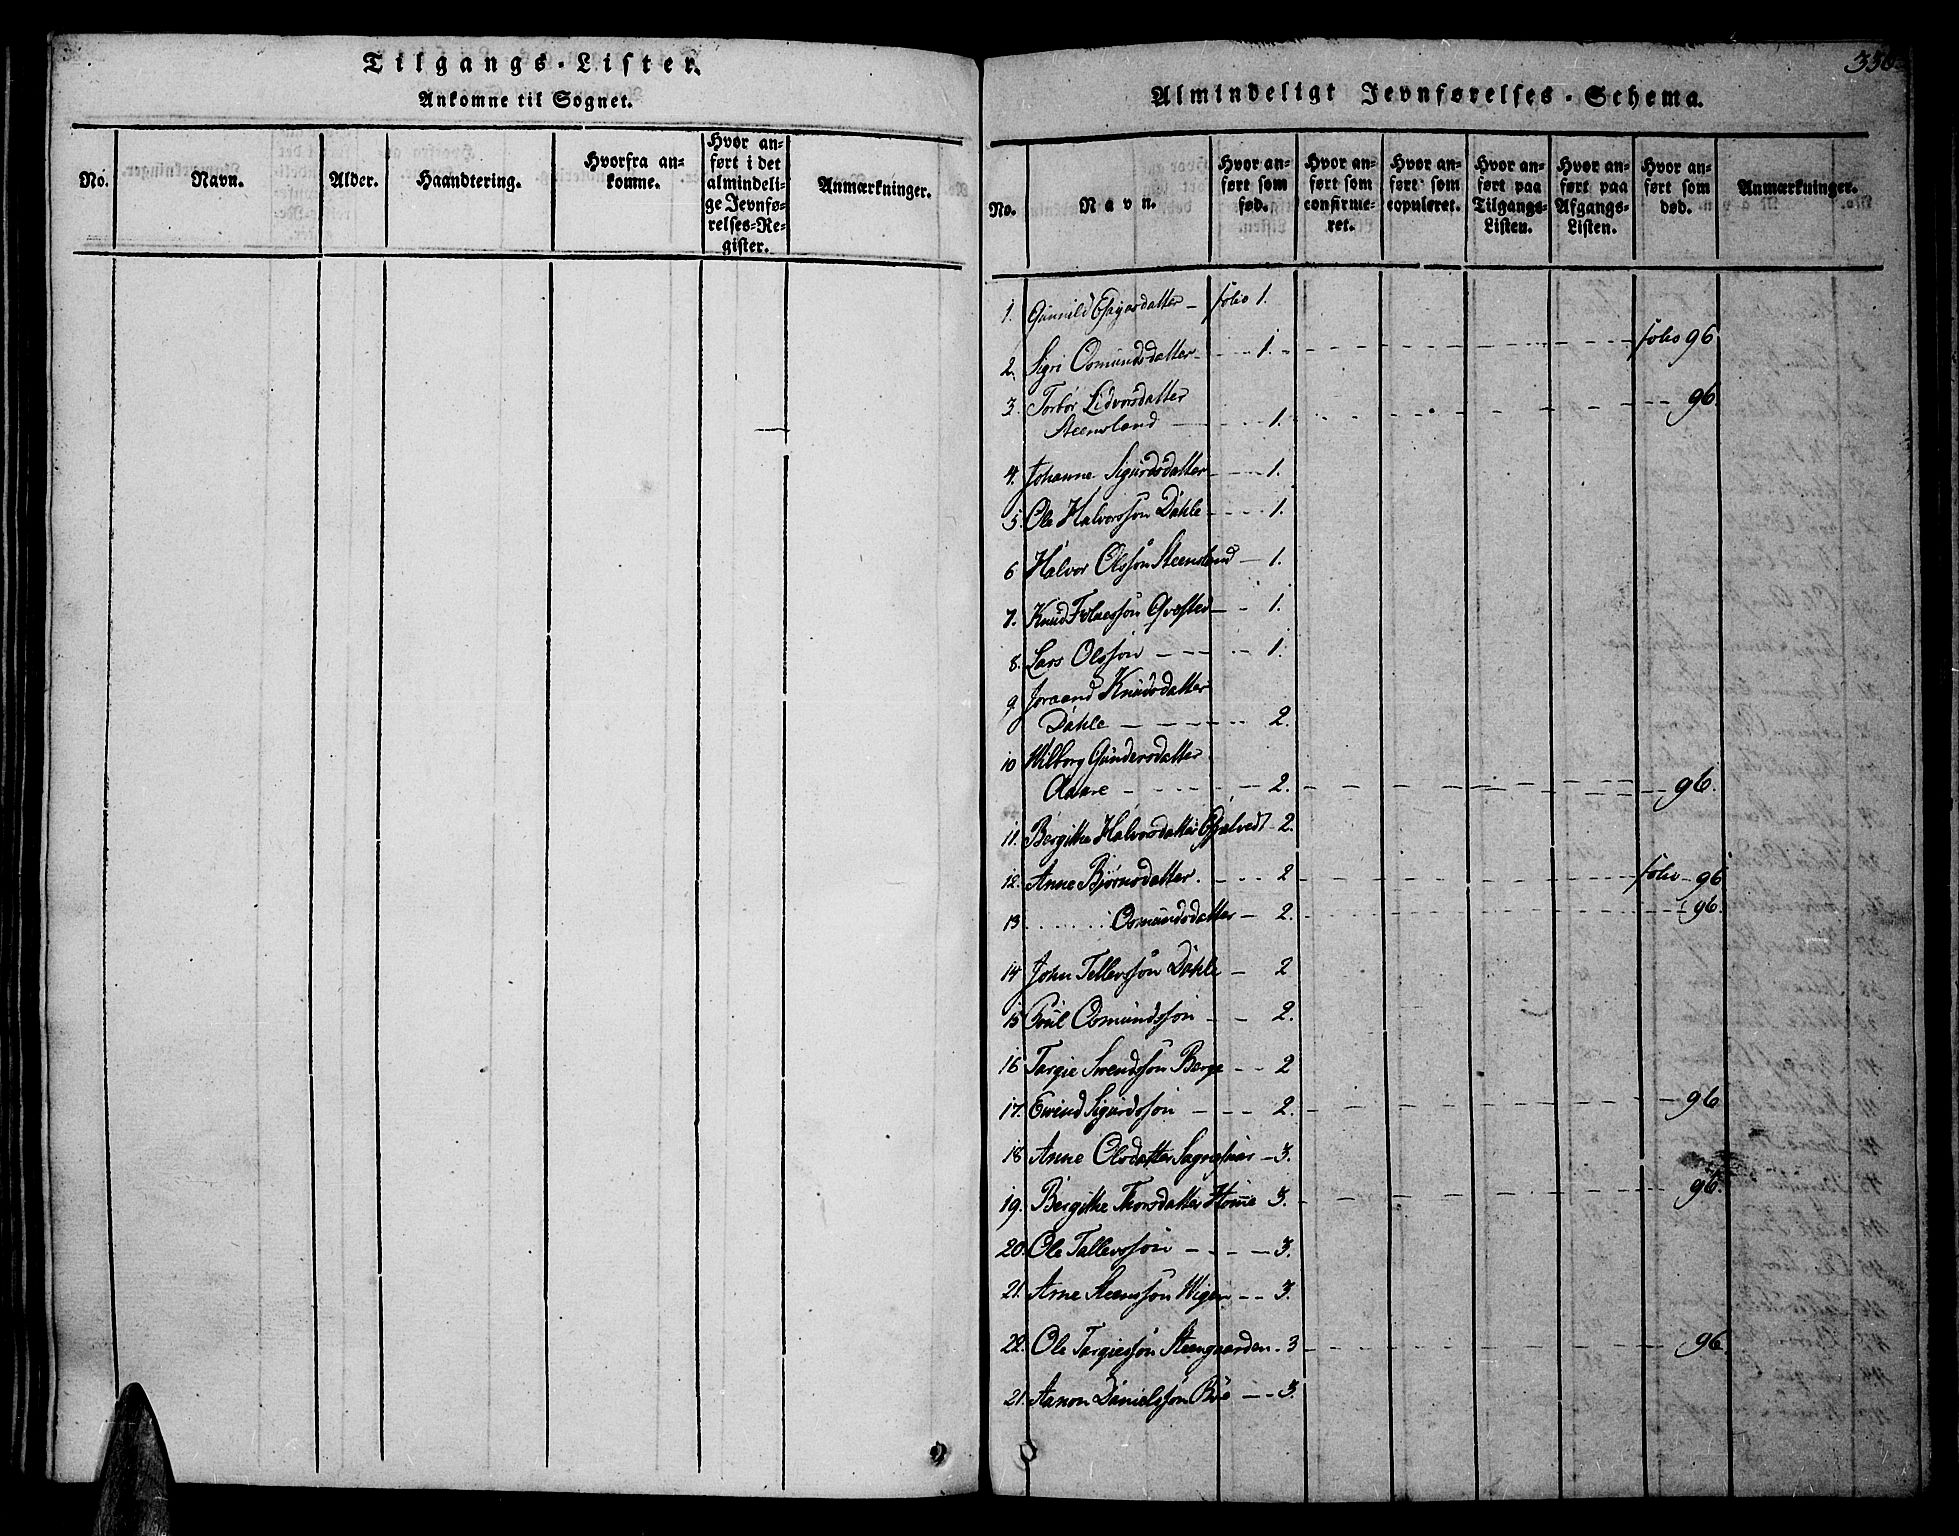 Tilgangs-Lister.
Ankomne til Sognet.
No.
Navn.
Alder.
Haandtering.
Hvorfra an-
komne.
Hvor an-
ført i det
almindeli-
ge Jevnfø-
relses-Re-
gister.
Anmærkninger.
350
Almindeligt Jevnførelses-Schema.
No.
Navn.
Hvor an-
ført som
fød.
Hvor an-
ført som
confirme-
ret.
Hvor an-
ført som
copuleret.
Hvor an-
ført paa
Tilgangs-
Listen.
Hvor an-
ført paa
Afgangs-
Listen.
Hvor an-
ført som
død.
Anmærkninger.
1. Gunnild datter - folio 1.
2. Sigri Osmundsdatter - 1. folio 96
3. Torbor Lidvorsdatter 96.
Steensland 1.
4. Johanne Sigurdsdatter - 1.
5. Ole Halvorssøn Dahle - 1.
6 Halvor Olssøn Steensland - 1.
7. Knud - 1.
8. Lars Olssøn - 1.
9 Joraand Knudsdatter
Dahle - 2.
10 Wilborg Gundersdatter
Aaare - 2. 96.
11. Bergithe Halvorsdatter - 2.
12. Anne Bjørnsdatter. - 2 folio 96
13 ...... Osmundsdatter - 2. 96.
14 John Tellevssøn Dahle - 2
15 Poul Osmundssøn - 2.
16 Targie Svendssøn Berge - 2
17. Ewind Sigurdssøn - 2. 96
18 Anne Olsdatter - 3.
19. Bergithe Thorsdatter Homme - 3. 96.
20. Ole Tallevssøn - 3.
21. Arne Steenssøn Wigen - 3.
22. Ole Targiessøn Steengaarden - 3 96.
21. Aanon Danielssøn Bøe - 3.